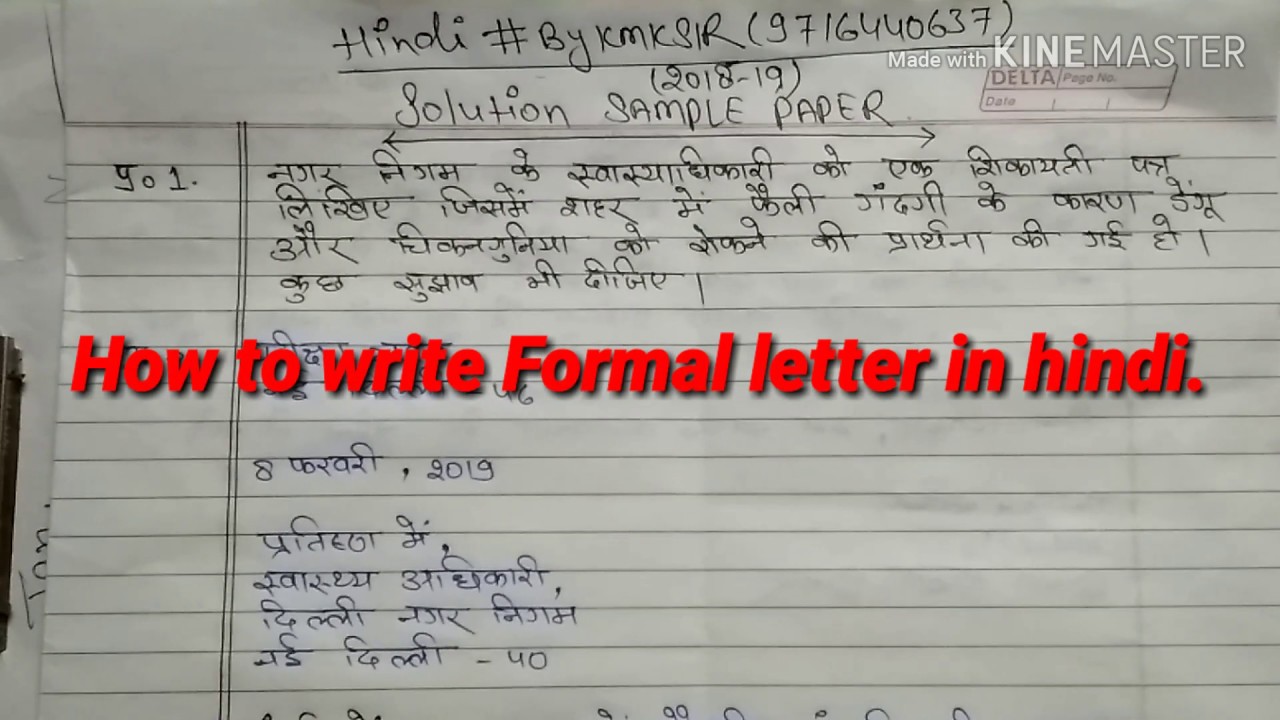 Hindi # By KMKSIR (9716440637)
Made with KINEMASTER
(2018-19)
DELTA Page No.
Date
Solution SAMPLE PAPER
प्र० 1. नगर निगम के स्वास्थाधिकारी को एक शिकायती पत्र
लिखिए जिसमें शहर में फैली गंदगी के कारण डेंगू
और चिकनगुनिया को रोकने की प्रार्थना की गई हो।
कुछ सुझाव भी दीजिए।
How to write Formal letter in hindi.
8 फरवरी, 2019
प्रतिष्ठा में,
स्वास्थ्य अधिकारी,
दिल्ली नगर निगम
नई दिल्ली - 40